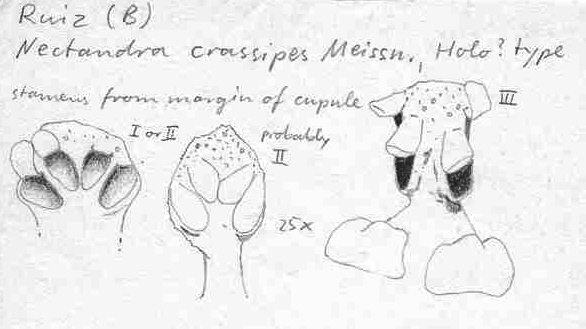 Ruiz (B)
Nectandra crassipes Meissn., Holo? type
stamens from margin of cupule
III
I or II
probably
II
25x